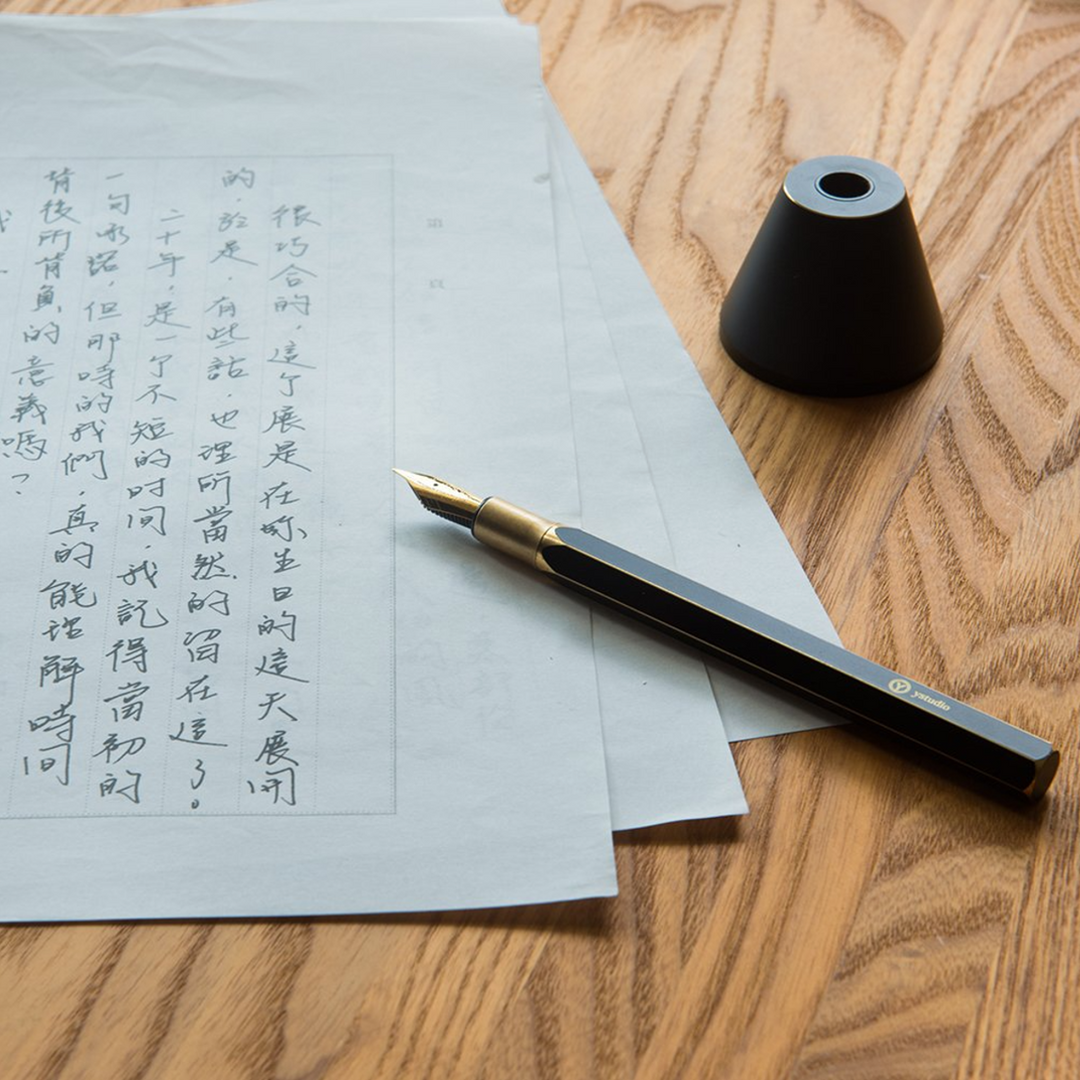 第 頁
很巧合的，這个展是在妳生日的這天展開
的，於是，有些話，也理所當然的留在這了。
二十年，是一个不短的时间，我記得當初的
一句承諾，但那時的我們，真的能理解時间
背後所背負的意義嗎？
ystudio